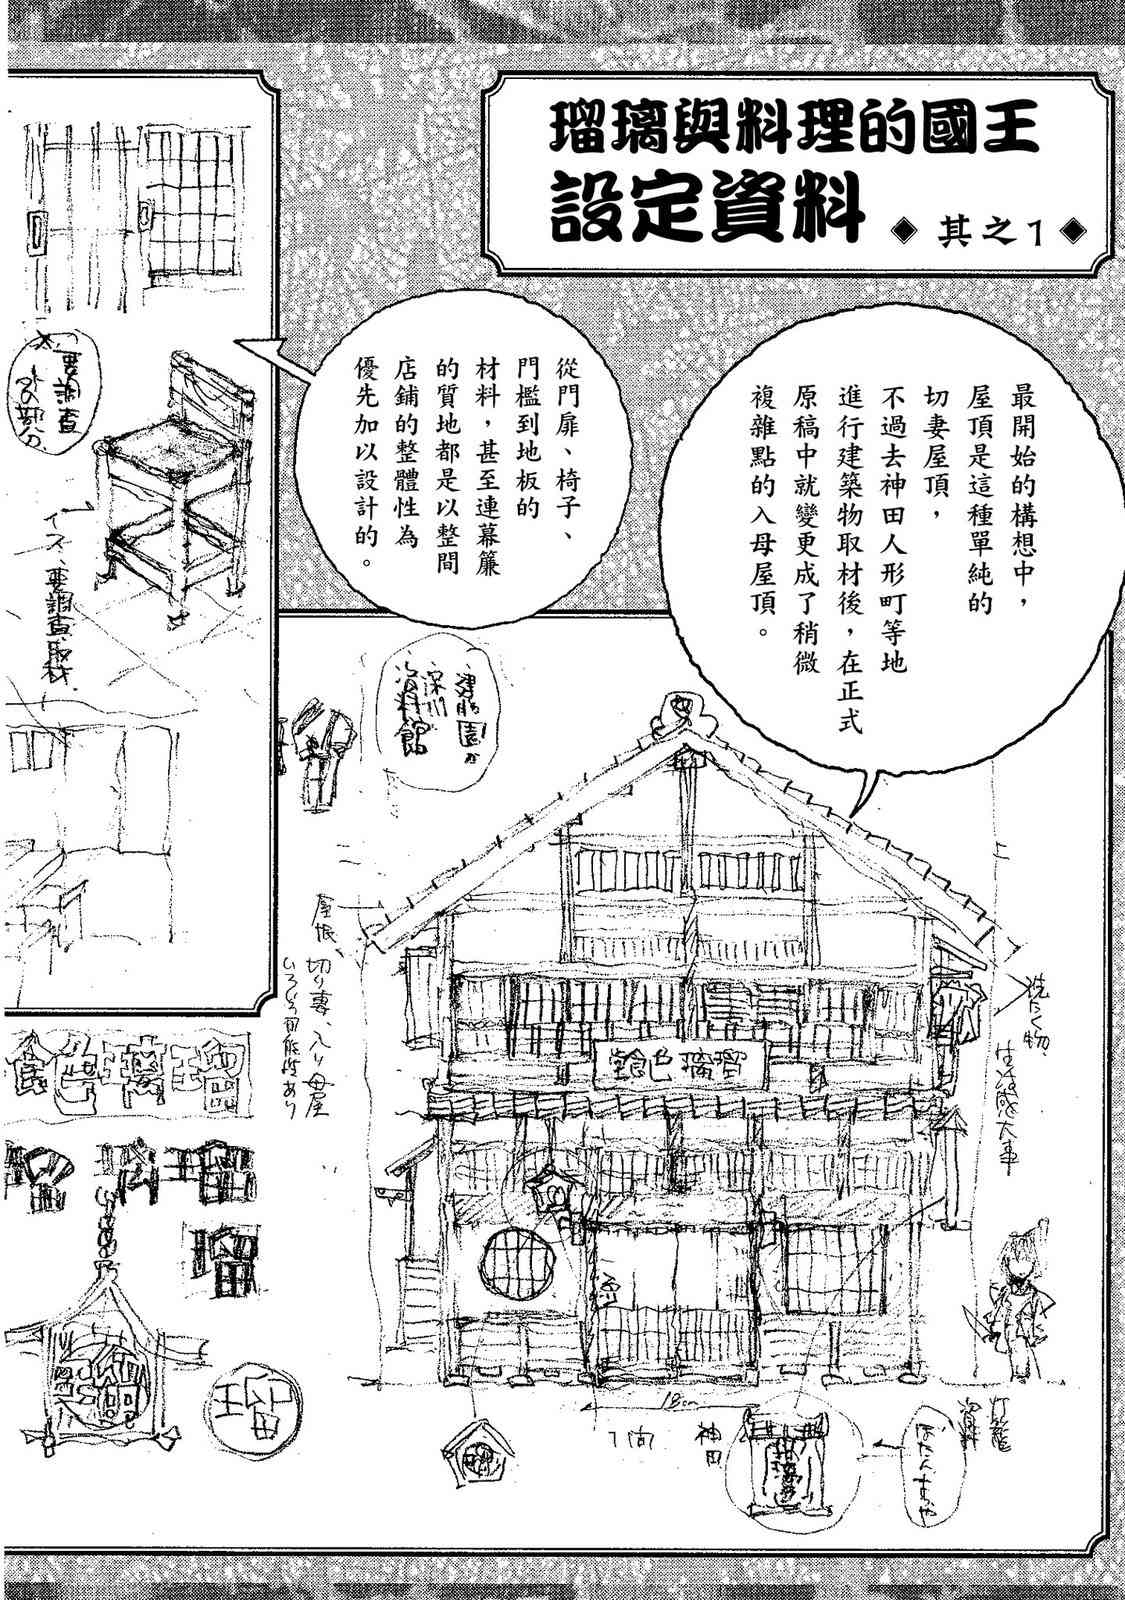 瑠璃與料理的國王
設定資料
◈ 其之1 ◈
最開始的構想中，
屋頂是這種單純的
切妻屋頂，
不過去神田人形町等地
進行建築物取材後，在正式
原稿中就變更成了稍微
複雜點的入母屋頂。
從門扉、椅子、
門檻到地板的
材料，甚至連幕簾
的質地都是以整間
店鋪的整體性為
優先加以設計的。
要調査
イス、要調査、取材
深川
資料館
屋根
切り妻、入り母屋
いろいろ可能性あり
洗たく物、
生活感大事
瑠璃色食堂
瑠璃色食
瑠璃
瑠
瑠
1間
神田
灯籠
資料
ぼたんすや